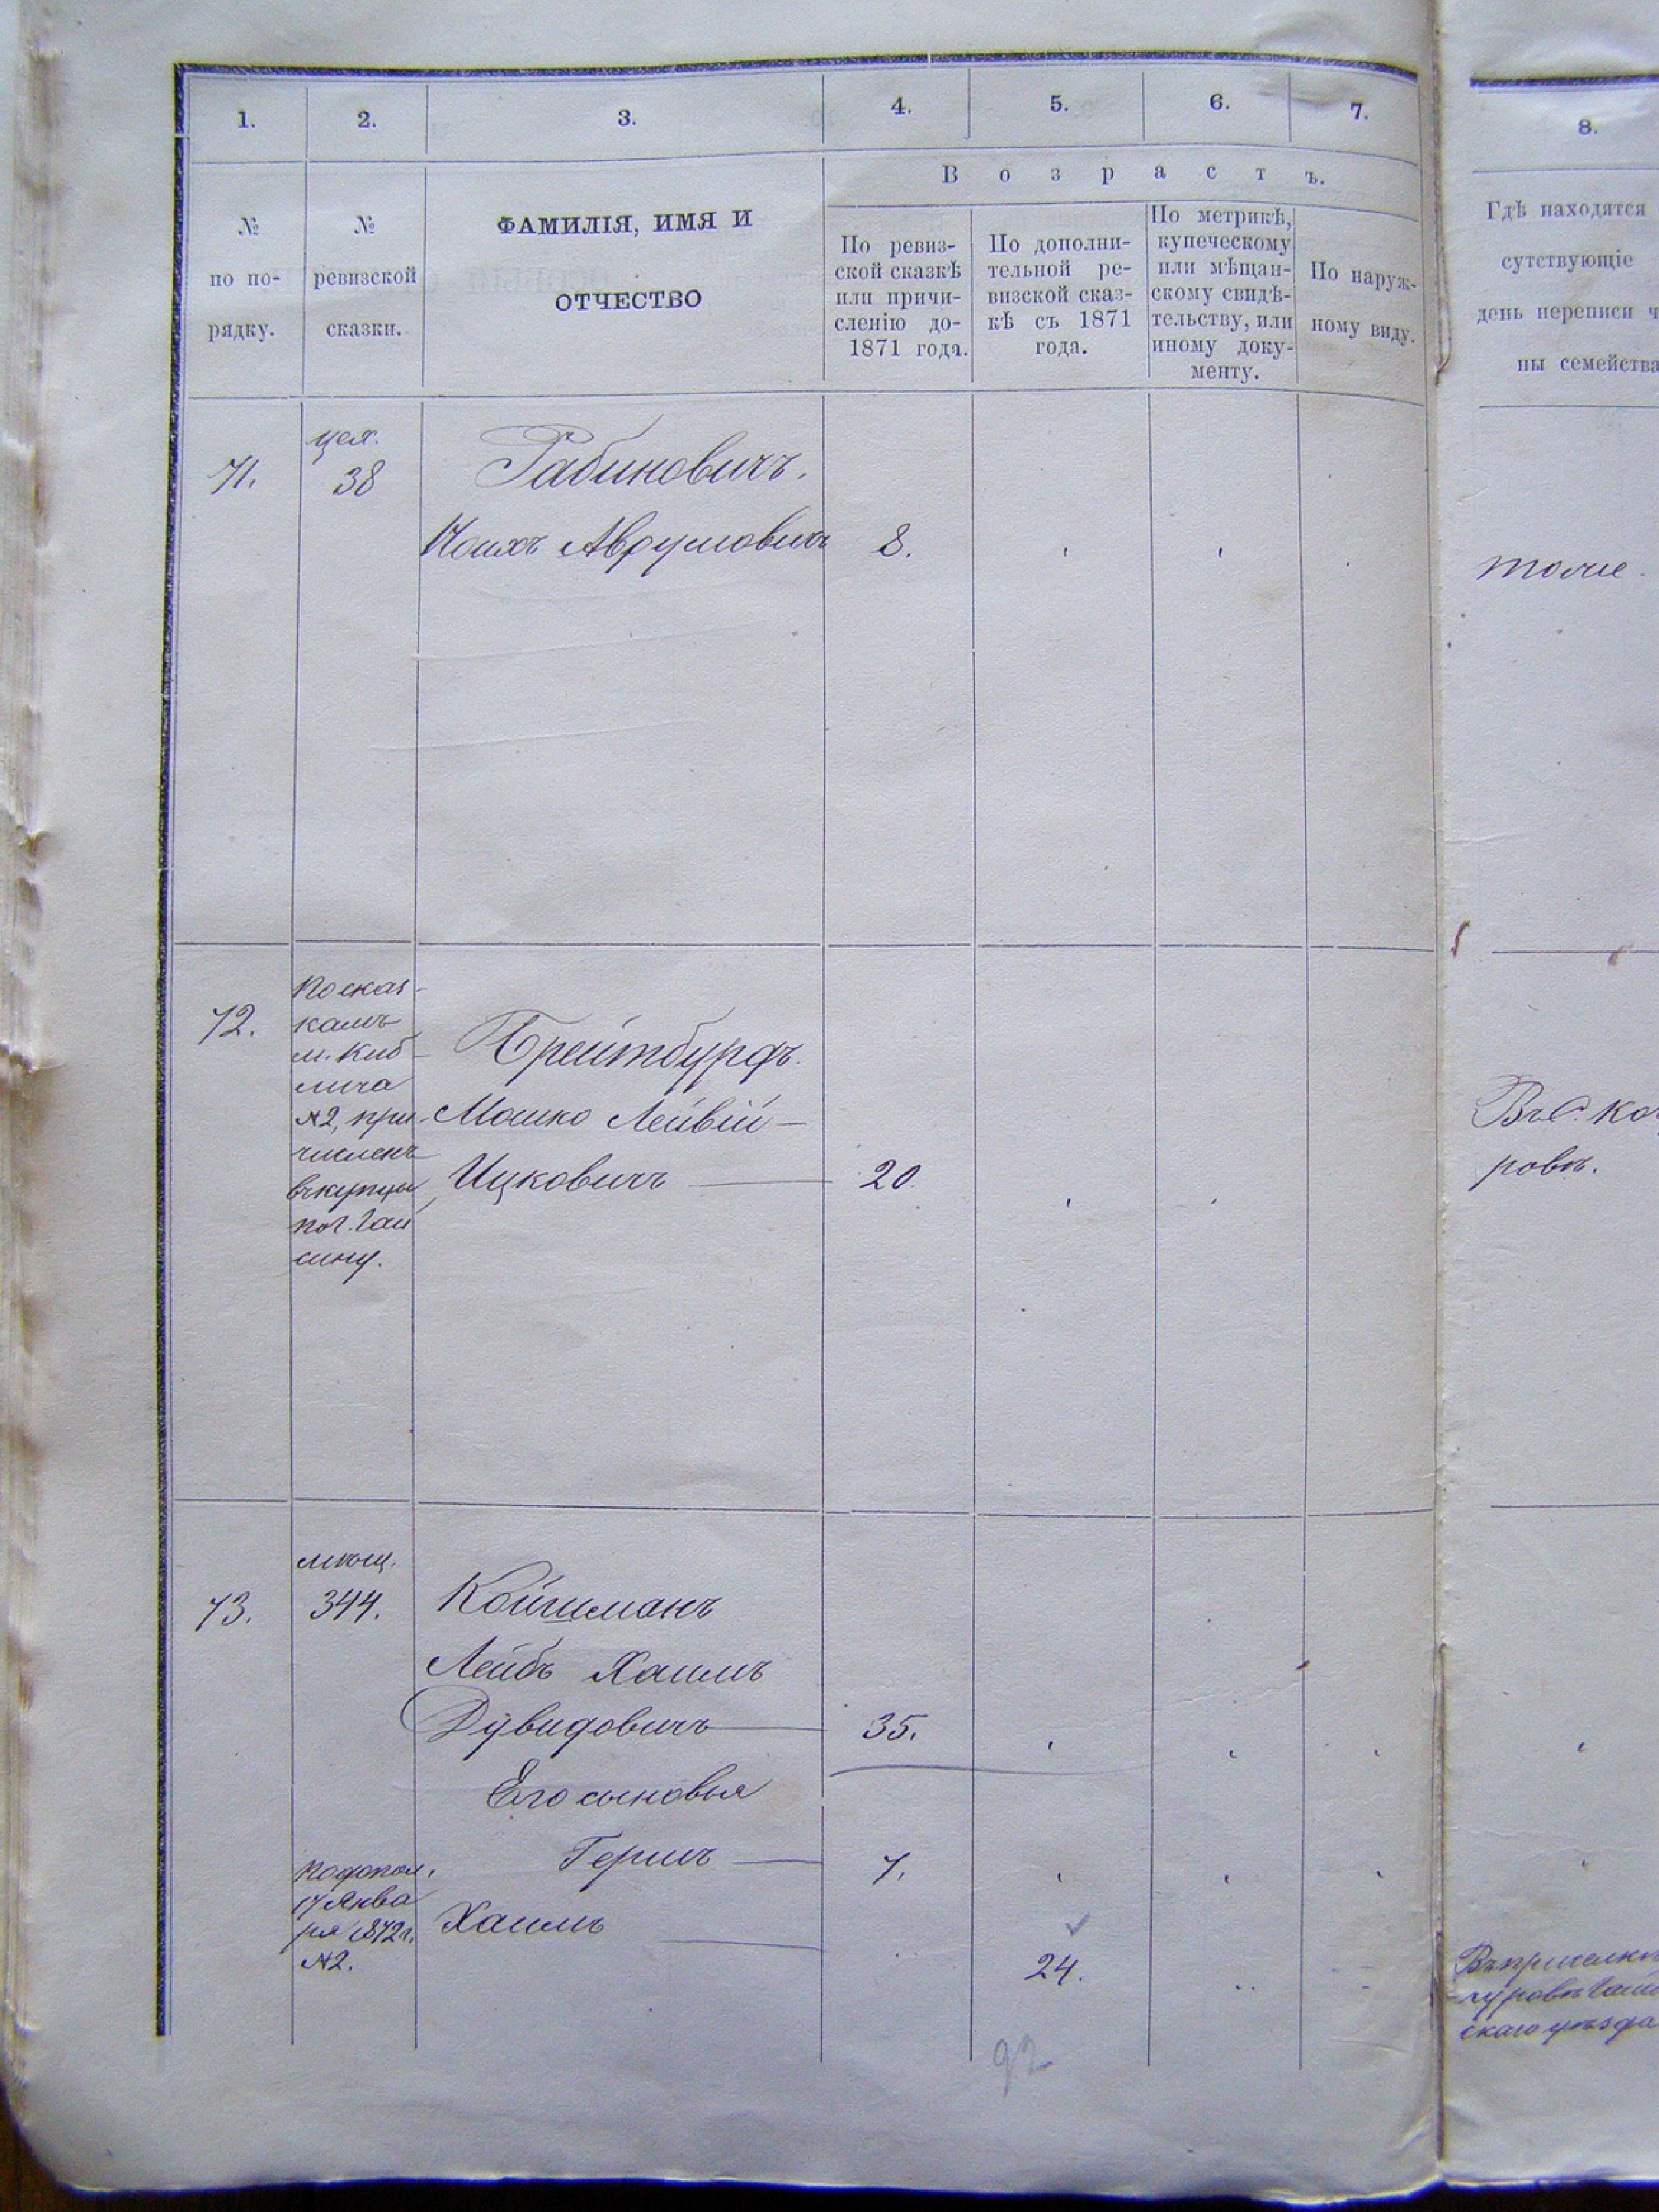 1.
2.
3.
4.
5.
6.
7.
8.
В о з р а с т ъ.
№
по по-
рядку.
№
ревизской
сказки.
ФАМИЛІЯ, ИМЯ И
ОТЧЕСТВО
По ревиз-
ской сказкѣ
или причи-
сленію до-
1871 года.
По дополни-
тельной ре-
визской сказ-
кѣ съ 1871
года.
По метрикѣ,
купеческому
или мѣщан-
скому свидѣ-
тельству, или
иному доку-
менту.
По наруж-
ному виду.
Гдѣ находятся
сутствующіе
день переписи ч
ны семейства
71.
цех.
38
Рабиновичъ.
Аврумовичъ
8.
тоже.
72.
По сказ-
камъ
м. Киб-
лича
№2, при-
численъ
въ купцы
по г. Гай
сину.
Брейтбурдъ.
Мошко Лейвій-
Ицковичъ
20.
Въ С.
ровѣ.
73.
мѣщ.
344.
Койшманъ
Лейбъ Хаимъ
Дувидовичъ
35.
Его сыновья
Гершъ
7.
По допол.
17 Янва
ря 1872 г.
№2.
Хаимъ
24.
скаго уѣзда
92